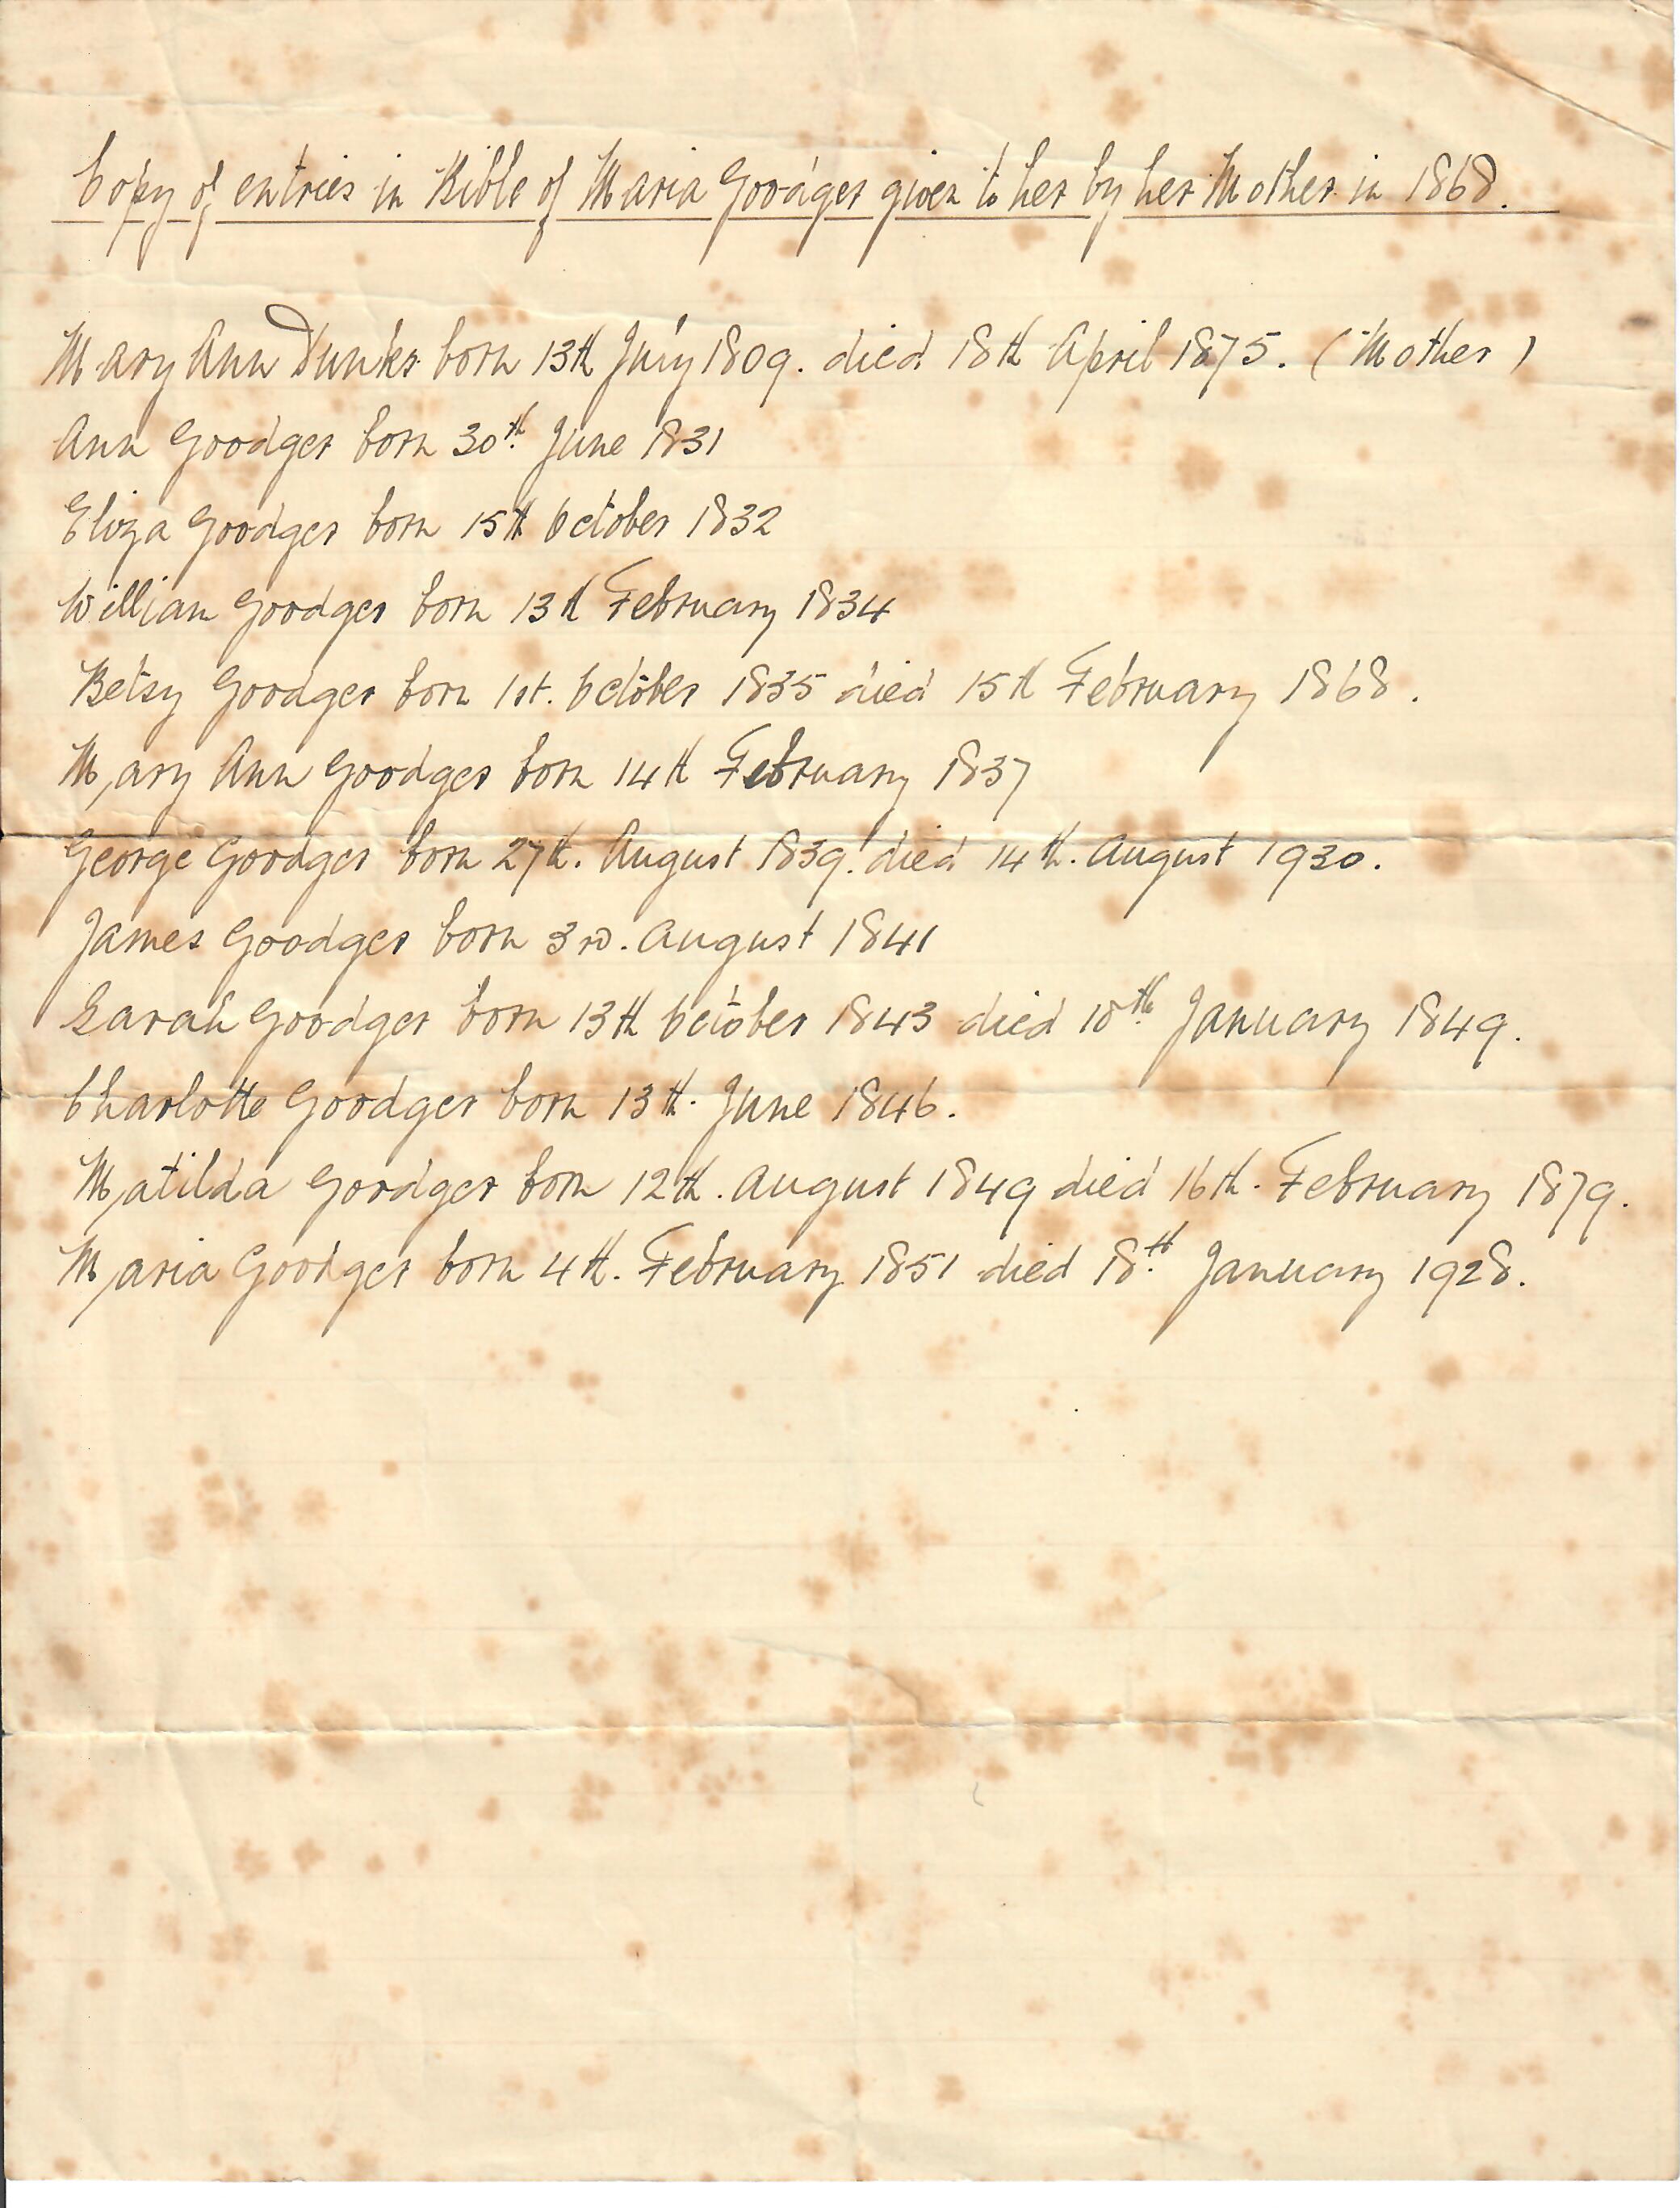 Copy of entries in Bible of Maria Goodger given to her by her Mother in 1868.
Mary Ann Dunks born 13th July 1809. died 18th April 1875. (Mother)
Ann Goodger born 30th. June 1831
Eliza Goodger born 15th October 1832
William Goodger born 13th February 1834
Betsy Goodger born 1st. October 1835 died 15th February 1868.
Mary Ann Goodger born 14th February 1837
George Goodger born 27th. August 1839. died 14th. August 1930.
James Goodger born 3rd. August 1841
Sarah Goodger born 13th October 1843 died 18th. January 1849.
Charlotte Goodger born 13th. June 1846.
Matilda Goodger born 12th. August 1849 died 16th. February 1879.
Maria Goodger born 4th. February 1851 died 18th. January 1928.